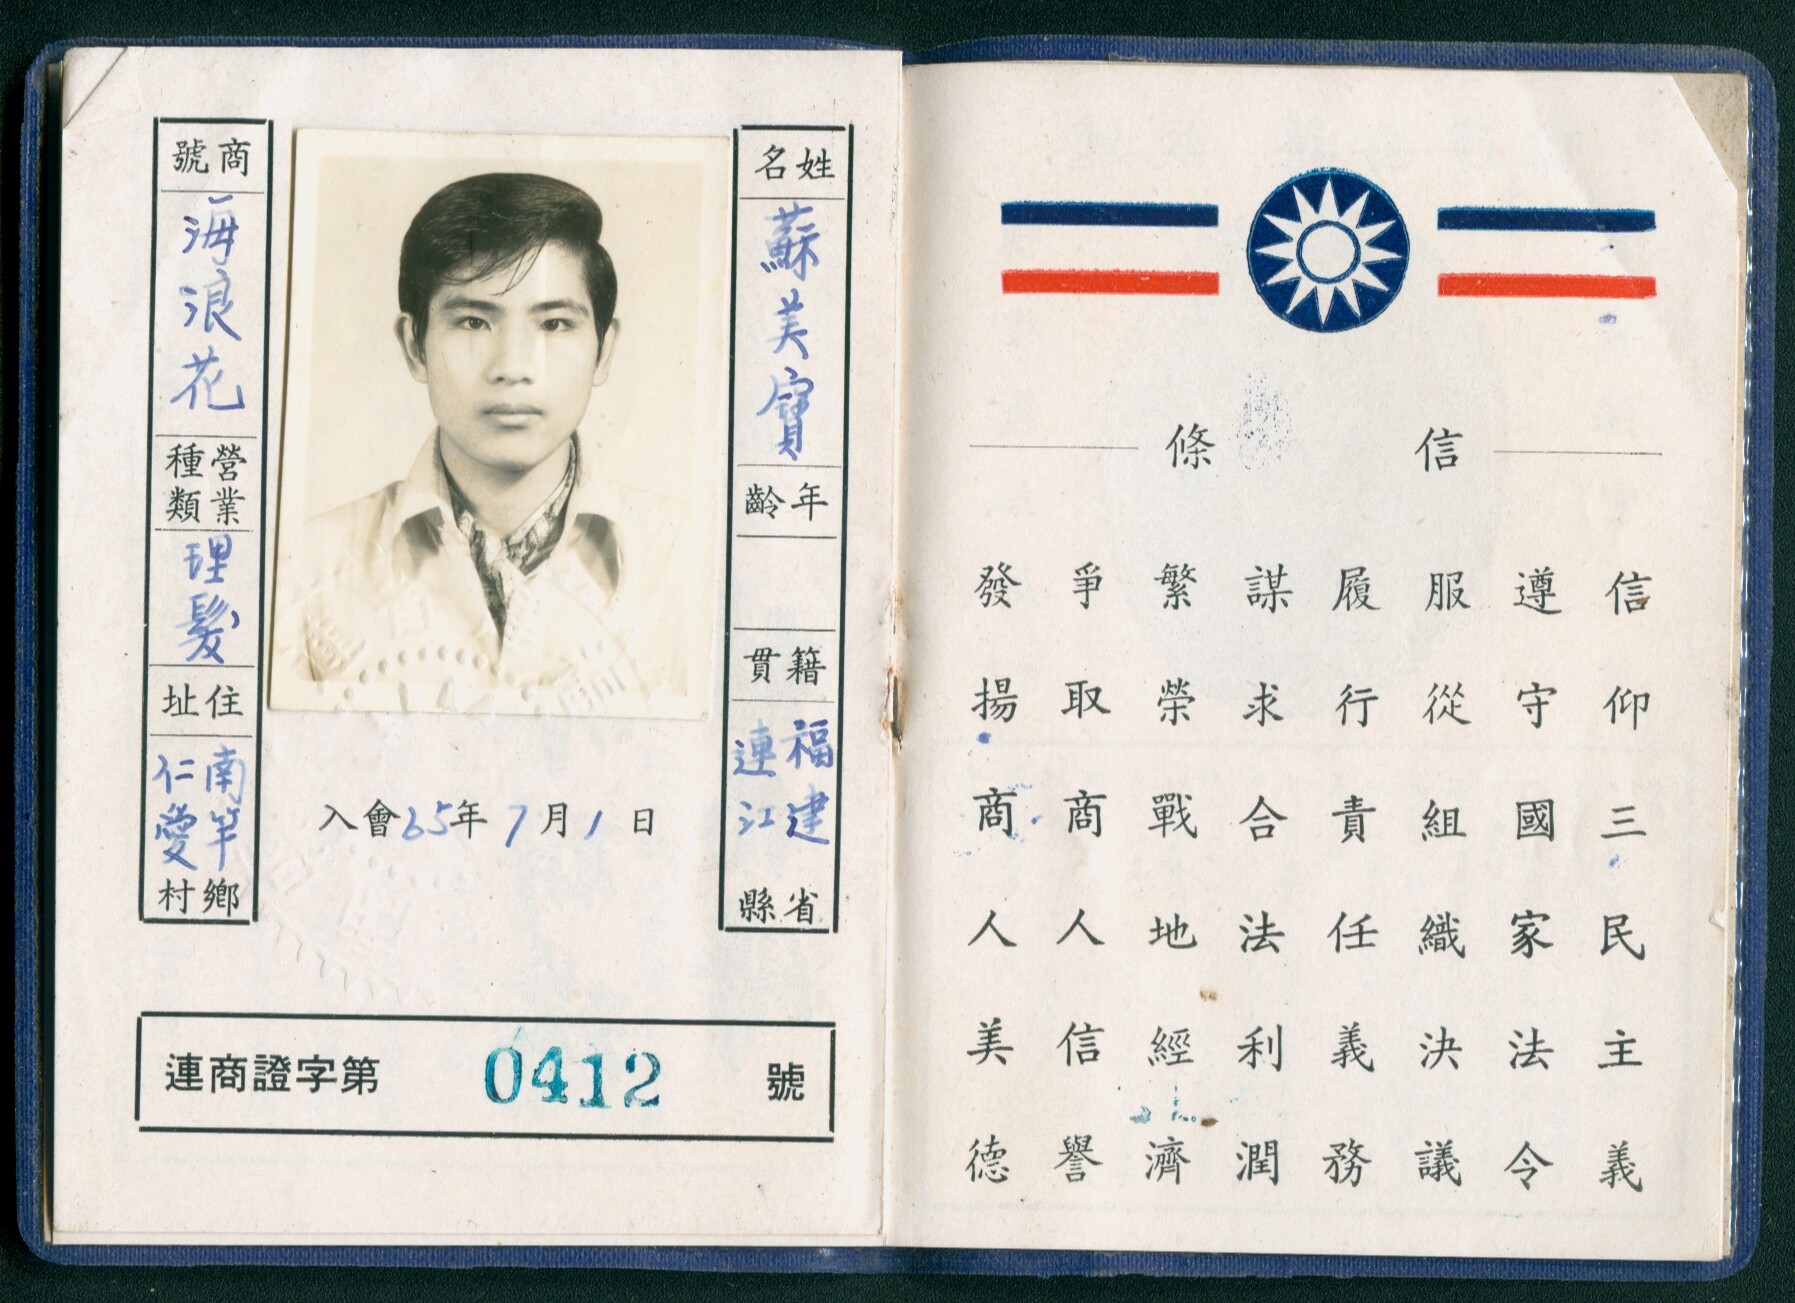 信條
信仰三民主義
遵守國家法令
服從組織決議
履行責任義務
謀求合法利潤
繁榮戰地經濟
爭取商人信譽
發揚商人美德
姓名
蘇美寶
年齡
籍貫
福建省
連江縣
商號
海浪花
營業種類
理髮
住址
南竿鄉
仁愛村
入會65年7月1日
連商證字第0412號